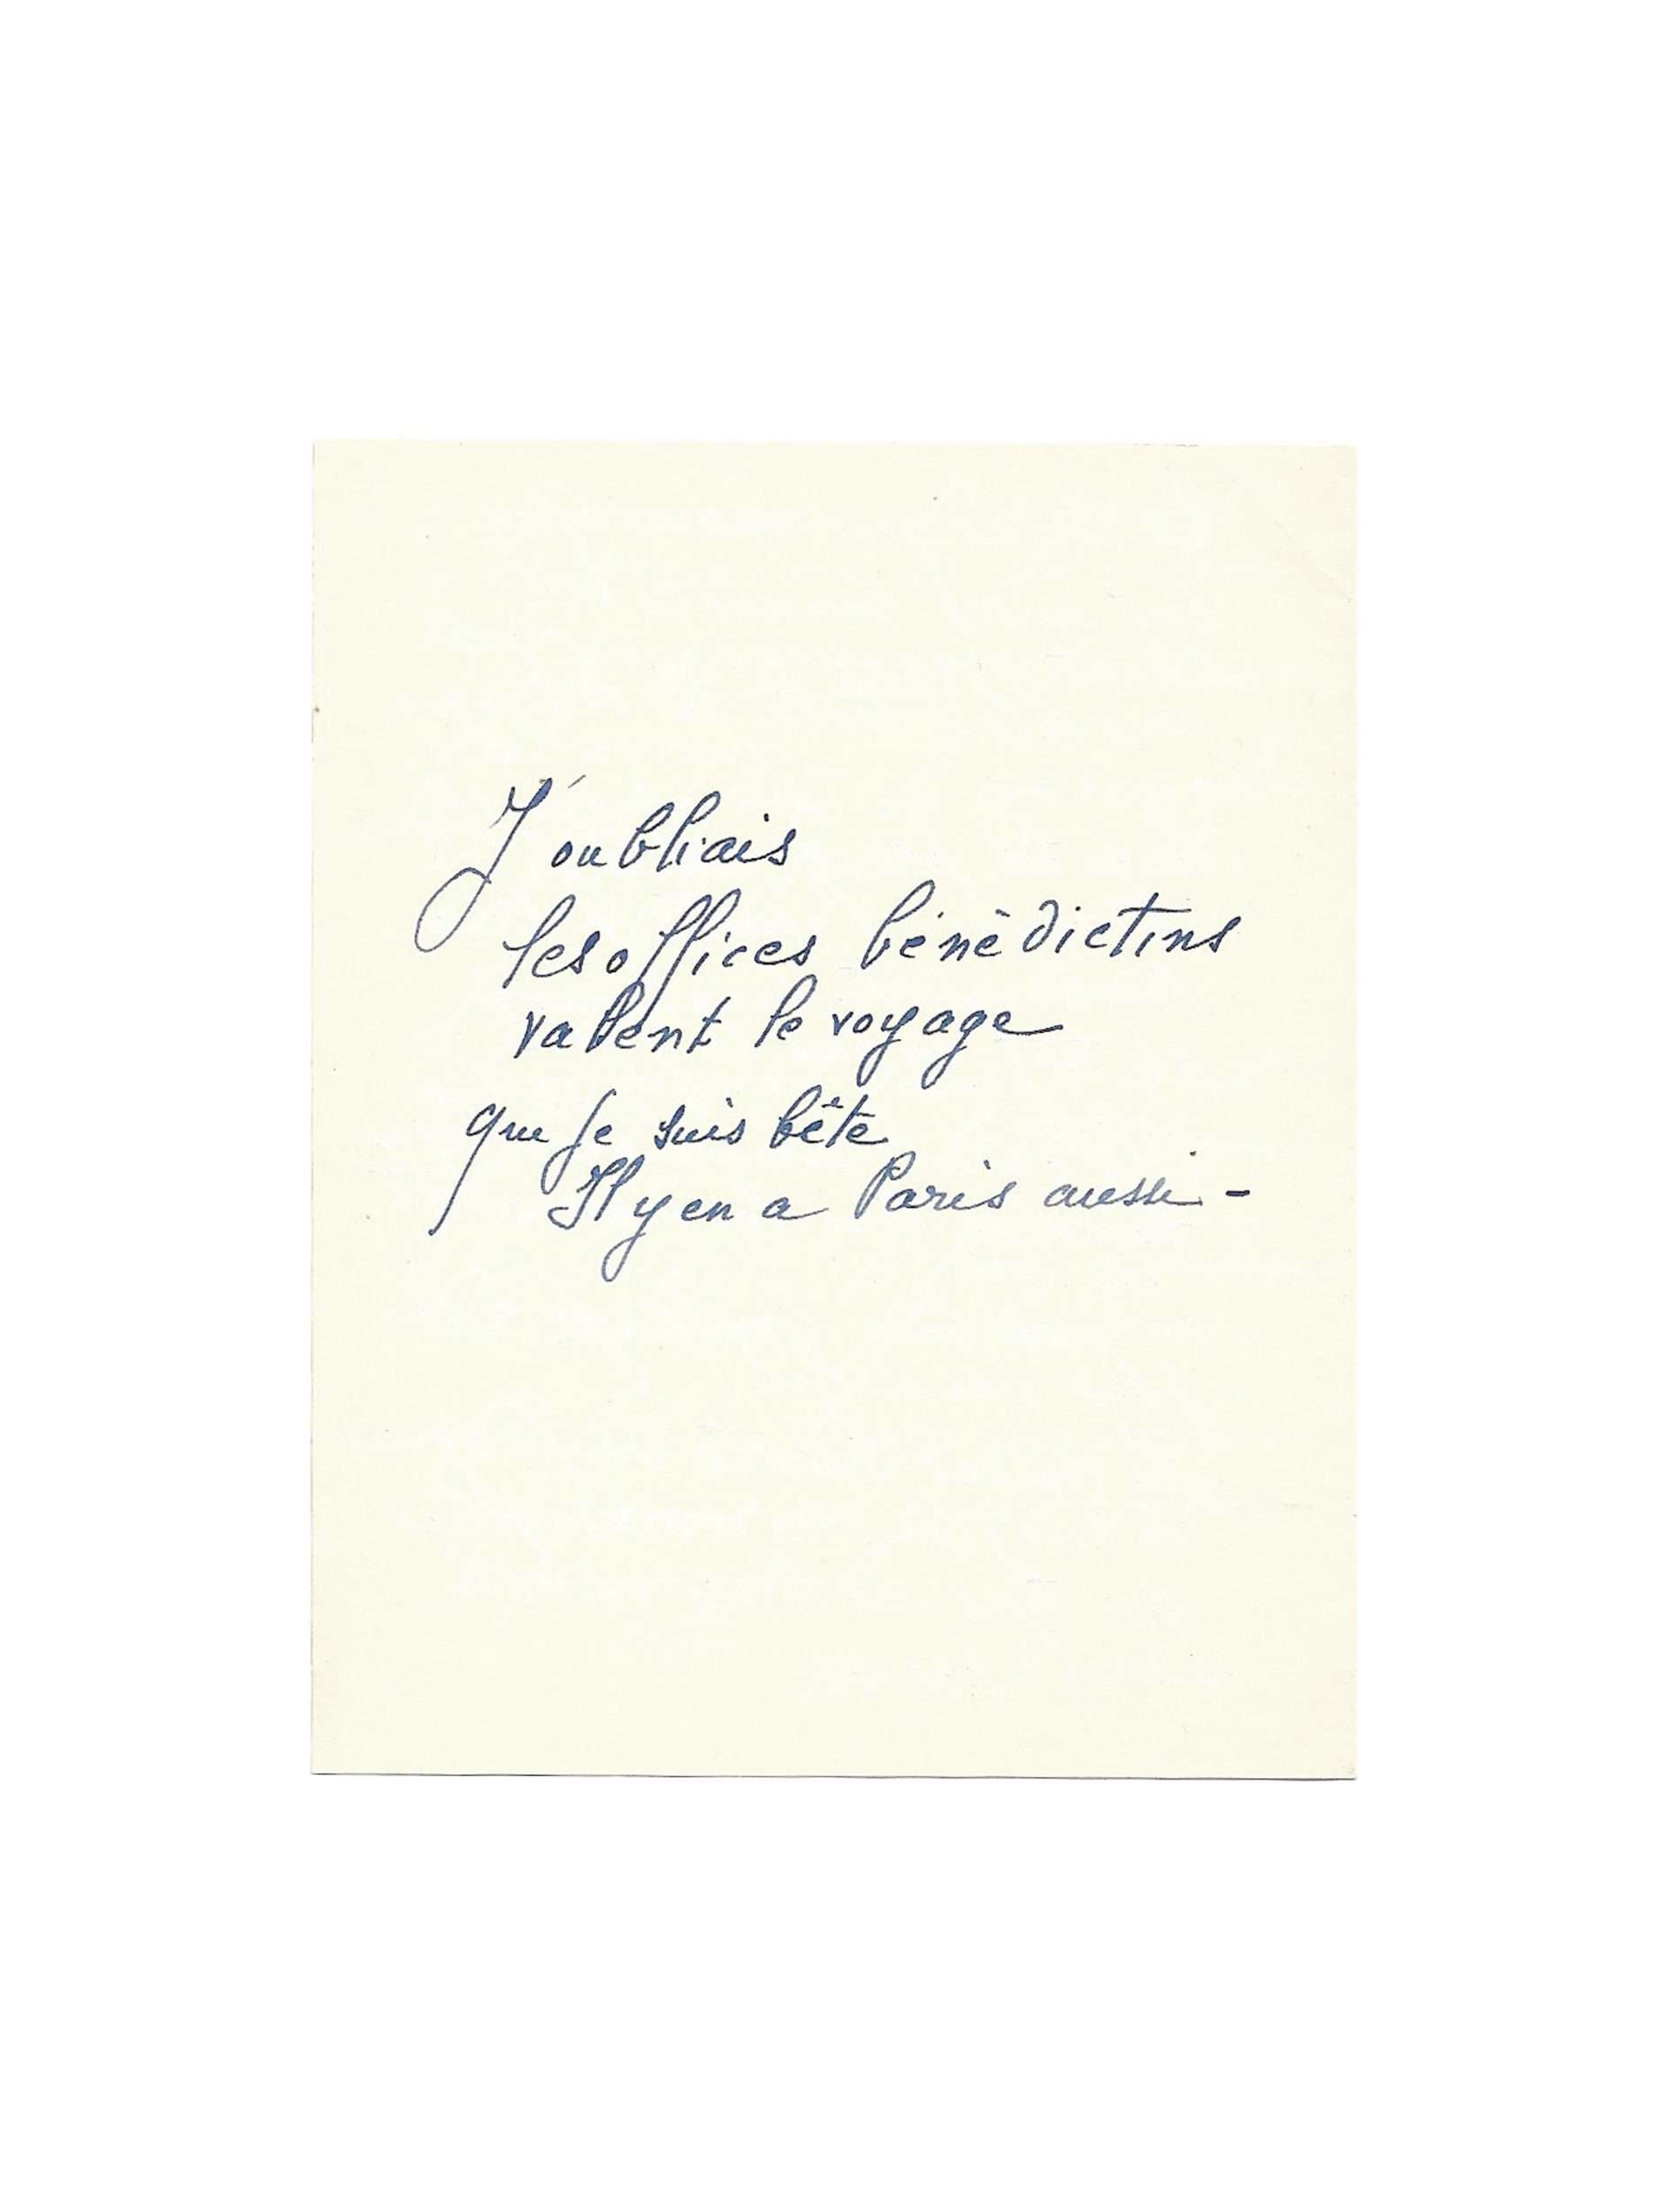 J'oubliais
les offices bénédictins
valent le voyage
que je suis bête
Il y en a Paris aussi -